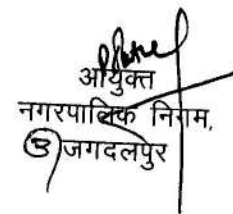 आयुक्त
नगरपालिक निगम,
③ जगदलपुर